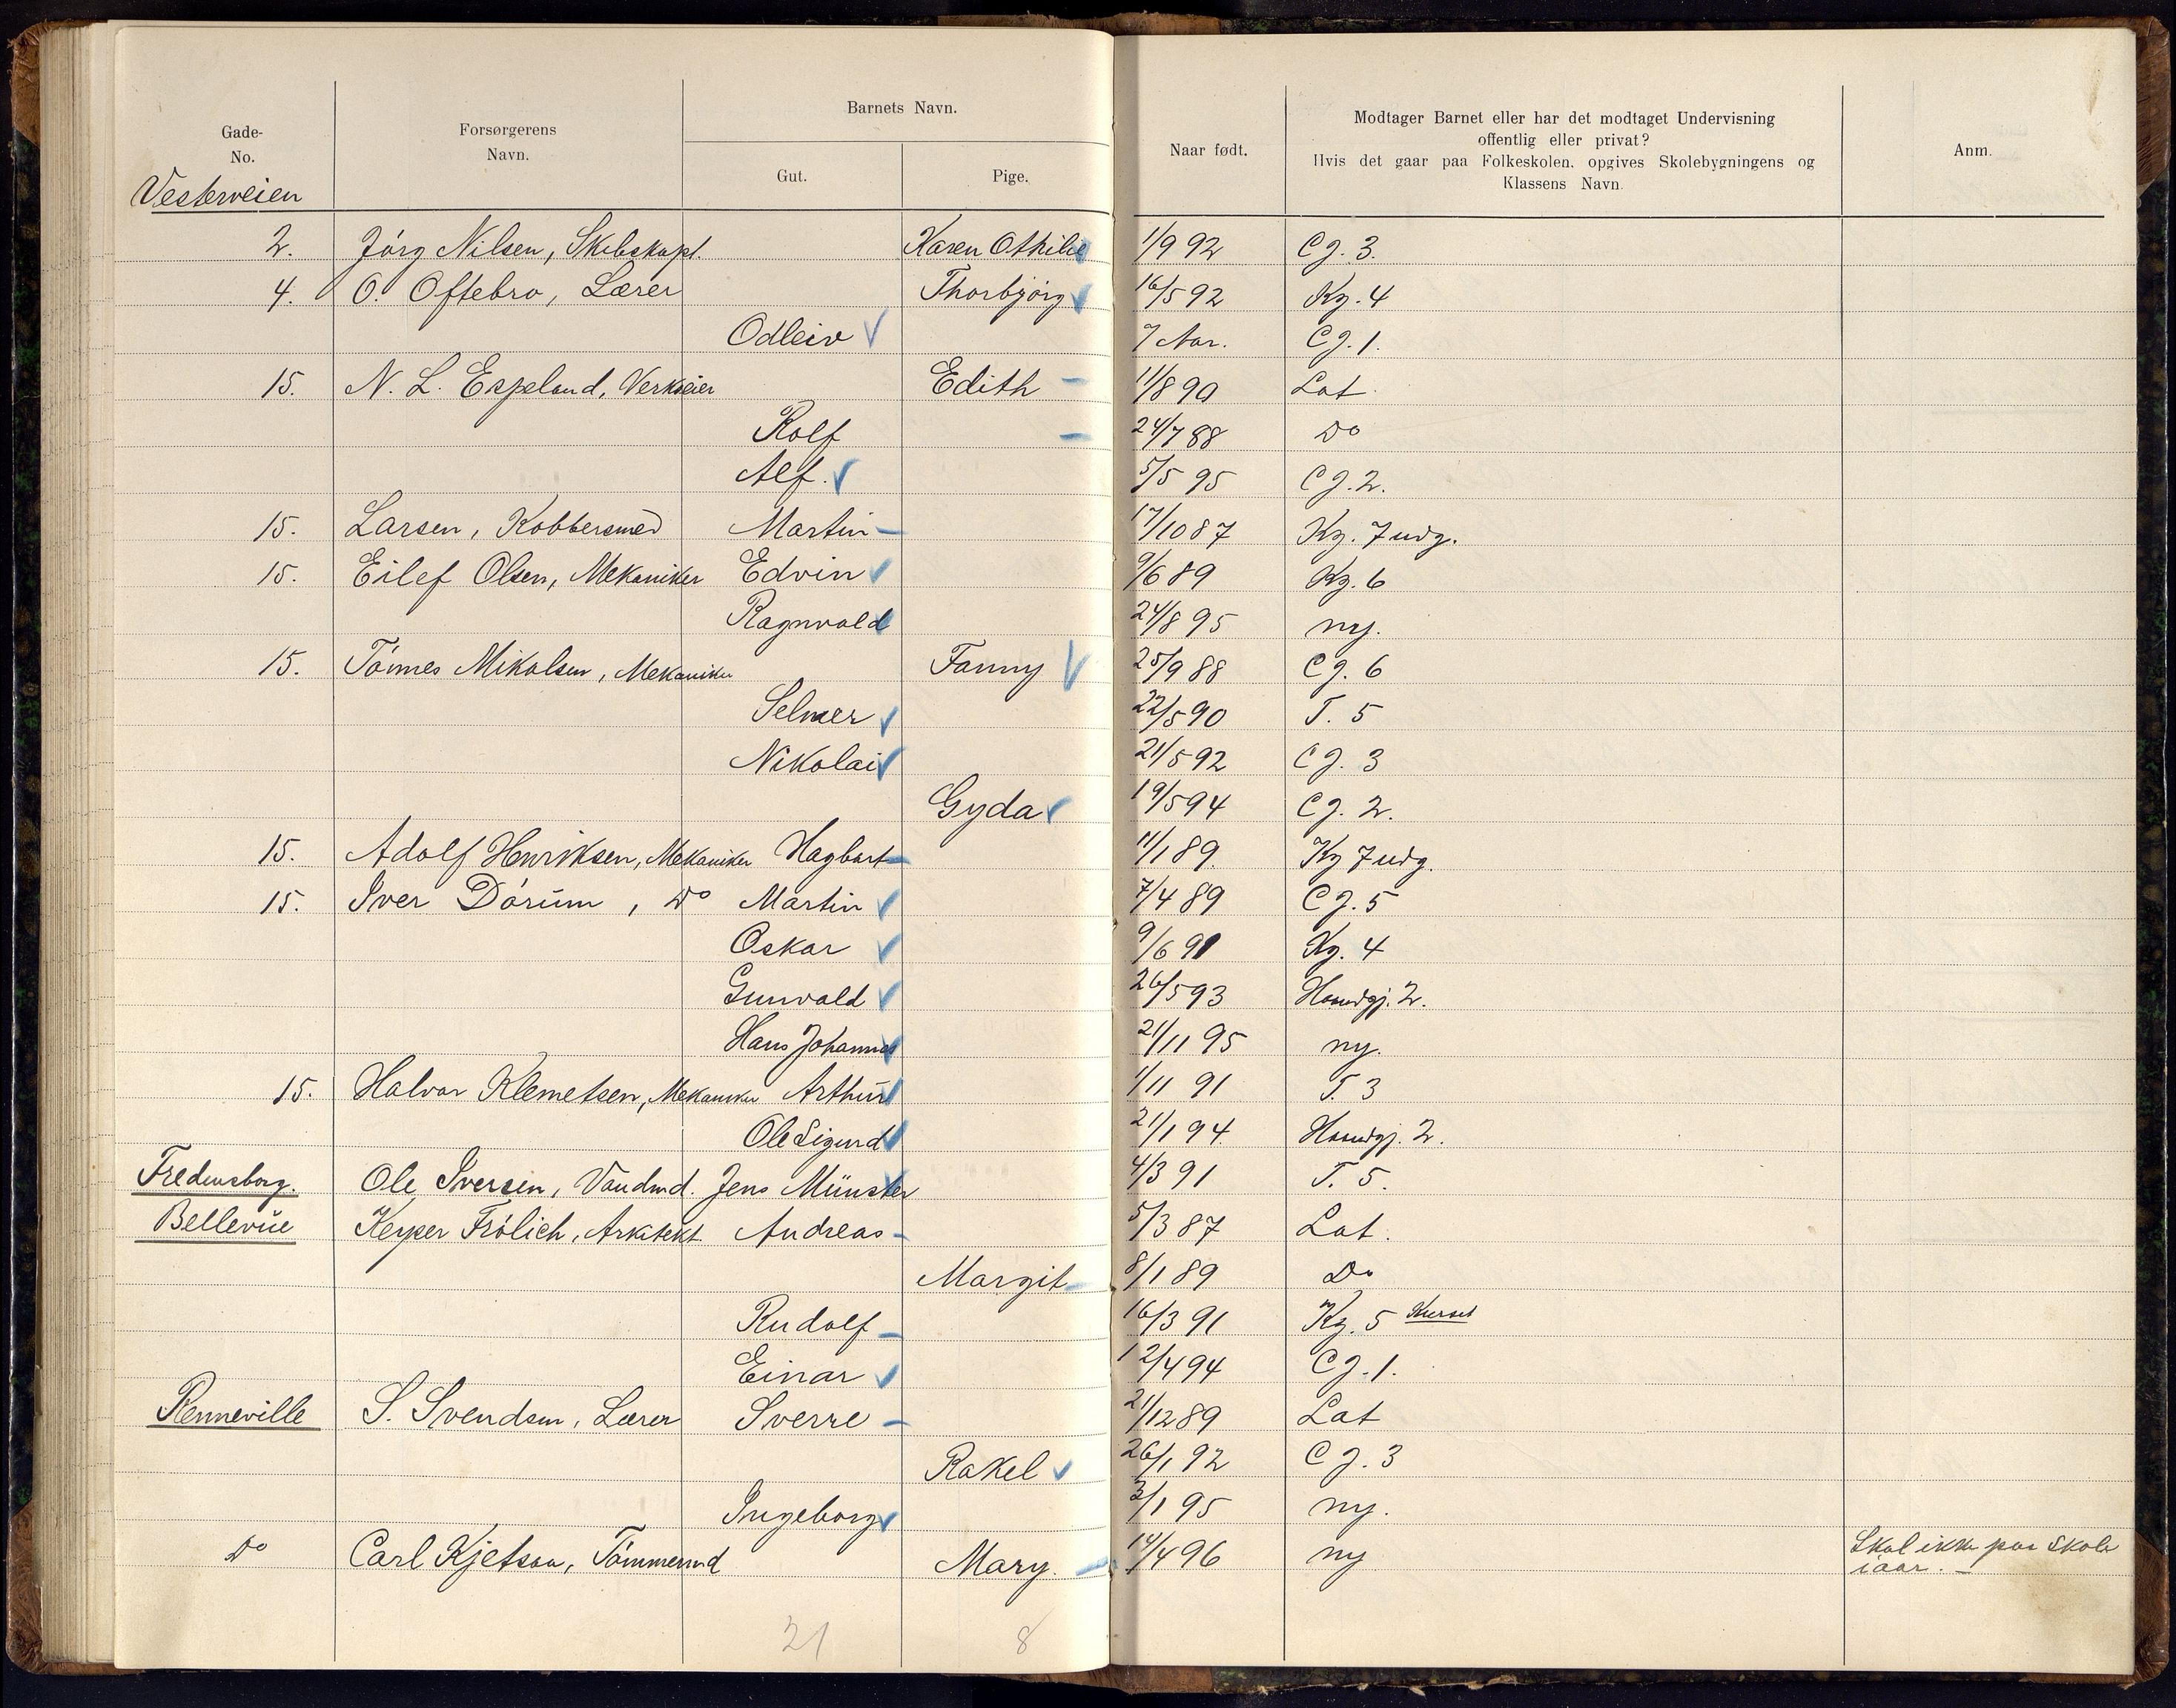 Gade-
No.
Forsørgerens
Navn.
Barnets Navn.
Gut.
Pige.
Naar født.
Modtager Barnet eller har det modtaget Undervisning
offentlig eller privat?
Hvis det gaar paa Folkeskolen, opgives Skolebygningens og
Klassens Navn.
Anm.
Vesterveien
2. Jörg Nilsen, Skibskapt. Karen Othilie 1/9 92 Cg. 3.
4. O. Oftebro, Lærer Thorbjörg 16/5 92 Kg. 4
Odleiv 7 Aar. Cg. 1.
15. N. L. Espeland, Verkseier Edith 11/8 90 Lat.
Rolf 24/7 88 Do
Alf. 5/5 95 Cg. 2.
15. Larsen, Kobbersmed Martin 17/10 87 Kg. 7 udg.
15. Eilef Olsen, Mekaniker Edvin 9/6 89 Kg. 6
Ragnvald 24/8 95 ny.
15. Tönnes Mikalsen, Mekaniker Fanny 25/9 88 Cg. 6
Selmer 22/5 90 T. 5
Nikolai 21/5 92 Cg. 3
Gyda 19/5 94 Cg. 2.
15. Adolf Henriksen, Mekaniker Hagbart 11/1 89. Kg 7 udg.
15. Iver Dörum, Do Martin 7/4 89 Cg. 5
Oskar 9/6 91 Kg. 4
Gunvald 26/5 93 Haandgj. 2.
Hans Johannes 21/11 95 ny.
15. Halvor Klemetsen, Mekaniker Arthur 1/11 91 T. 3
Ole Sigurd 21/1 94 Haandgj. 2.
Fredensborg. Ole Iversen, Vandmd. Jens Münster 4/3 91 T. 5.
Bellevue Keyser Frölich, Arkitekt. Andreas 5/3 87 Lat.
Margit 8/1 89 Do
Rudolf 16/3 91 Kg. 5 Kurset
Einar 12/4 94 Cg. 1.
Renneville S. Svendsen, Lærer Sverre 21/12 89 Lat
Rakel 26/1 92 Cg. 3
Ingeborg 3/1 95 ny.
Do Carl Kjetsaa, Tömmermd Mary. 14/4 96 ny Skal ikke paa Skole
iaar.
21 8